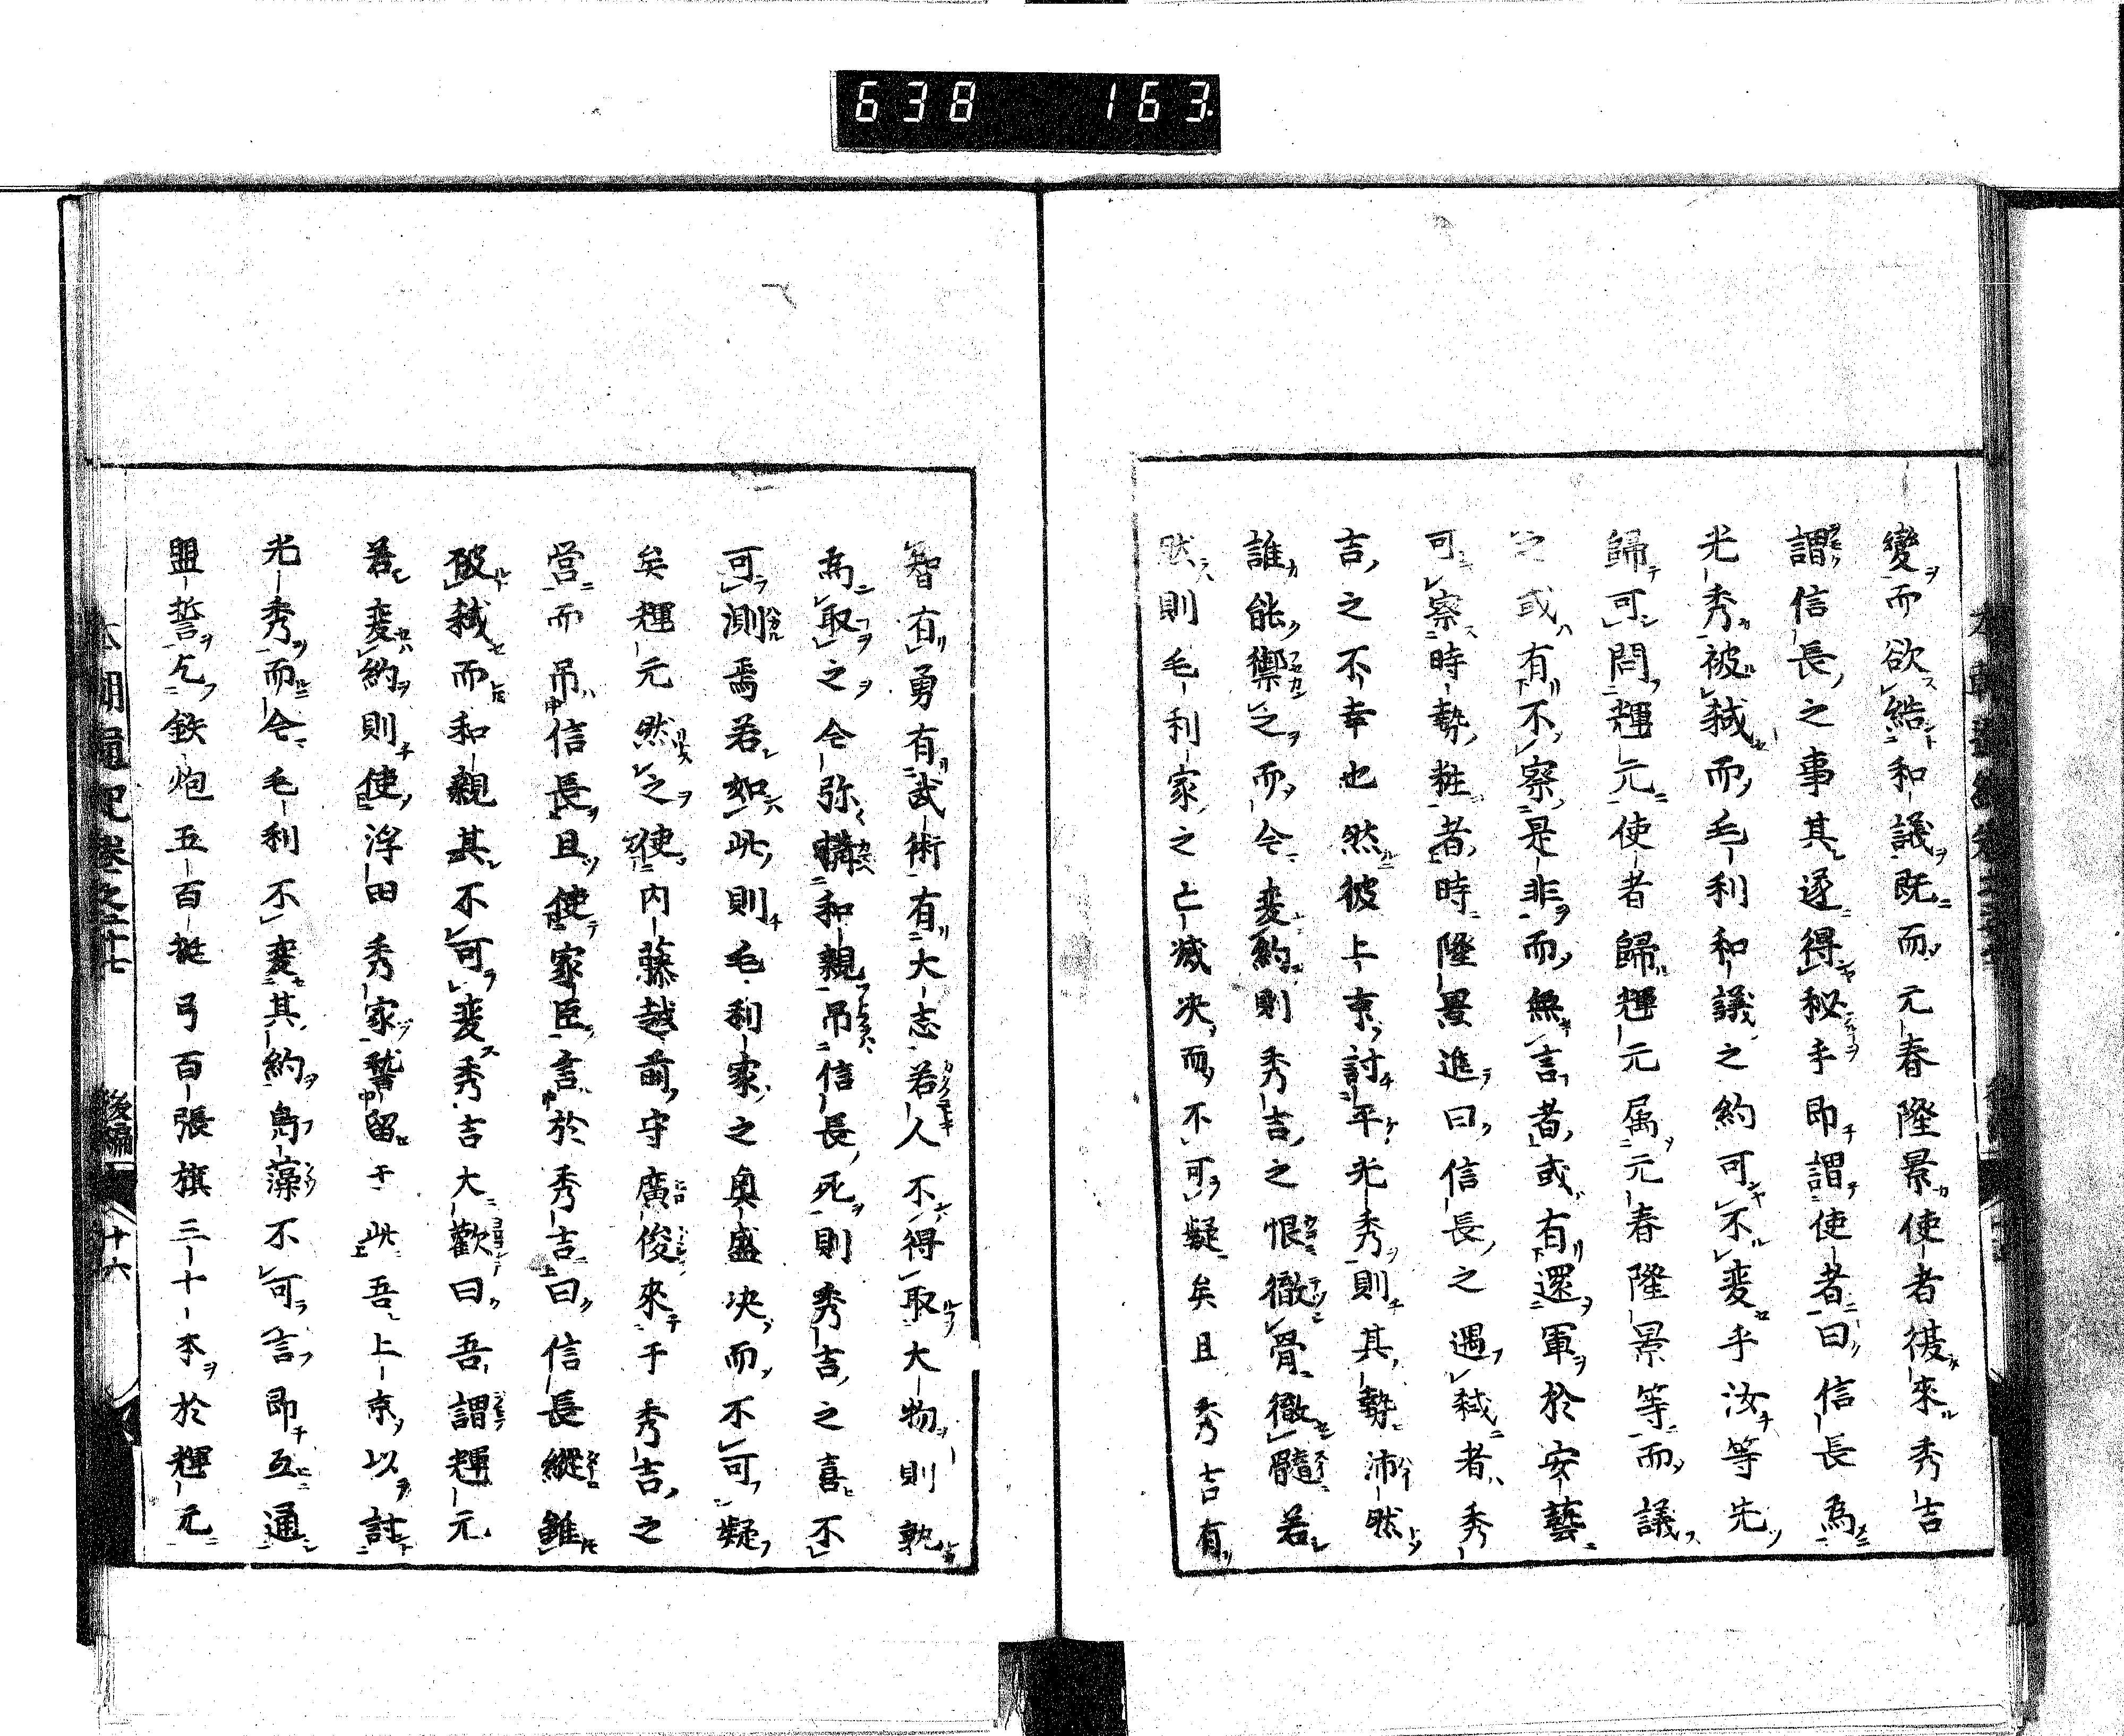 638 163
變而欲結和議既而元春隆景使者後來秀吉
謂信長之事其遂得秘乎即謂使者曰信長為
光秀被弑而毛利和議之約可不変乎汝等先
歸可問輝元使者歸輝元属元春隆景等而議
之或有不察是非而無言者或有還軍於安藝
可察時勢粧者時隆景進曰信長之遇弑者秀
吉之不幸也然彼上京討平光秀則其勢沛然
誰能禦之而今変約則秀吉之恨徹骨徹髓若
然則毛利家之亡滅决而不可疑矣且秀吉有
智有勇有武術有大志若人不得取大物則孰
為取之今弥搆和親吊信長死則秀吉之喜不
可測焉若如此則毛利家之奥盛决而不可疑
矣輝元然之使内藤越前守廣俊來于秀吉之
営而吊信長且使家臣言於秀吉曰信長縦雖
被弑而和親其不可変秀吉大歡曰吾謂輝元
若変約則使浮田秀家暫留于此吾上京以討
光秀而今毛利不変其約鳧藻不可言即互通
盟誓乞鉄炮五百挺弓百張旗三十本於輝元
本朝通紀卷之二十七 後編 十六